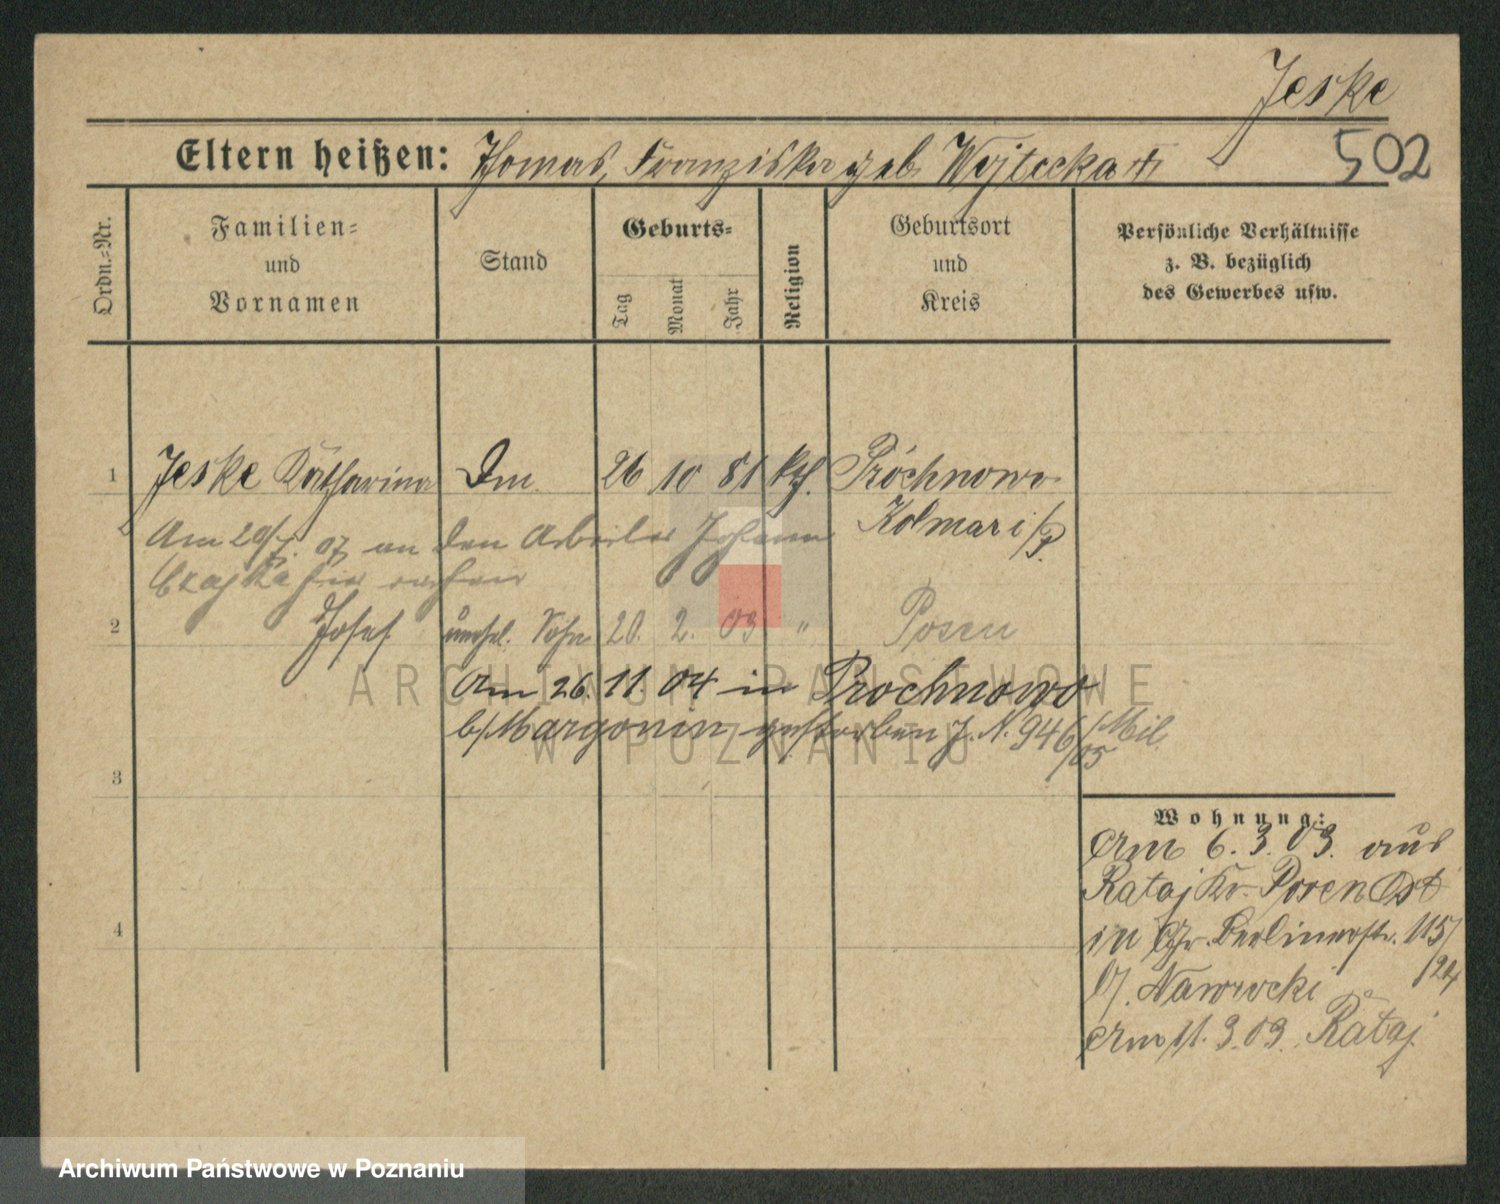 Jeske
502
Eltern heißen: Thomas, Franziska geb. Wojtecka †
Ordn.-Nr.
Familien-
und
Vornamen
Stand
Geburts-
Tag
Monat
Jahr
Religion
Geburtsort
und
Kreis
Persönliche Verhältnisse
z. B. bezüglich
des Gewerbes usw.
1 Jeske Katharina 26 10 81 kth. Próchnowo
Kolmar i/P
Am 20/7. 07 an den Arbeiter Johann
2 Josef unehel. Sohn 20. 2. 03 " Posen
Am 26. 11. 04 in Prochnowo
b/Margonin gestorben J. N. 946/Mil
05
3
4
Wohnung:
Am 6. 3. 03. aus
Rataj Kr. Posen Ost
in Gr. Berlinerstr. 115/
24
b/. Nawrocki
Am 11. 3. 03. Rataj
ARCHIWUM PAŃSTWOWE
W POZNANIU
Archiwum Państwowe w Poznaniu